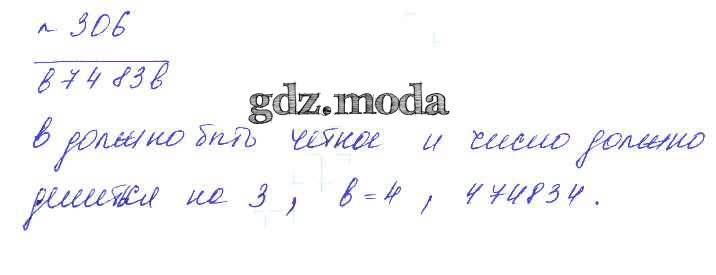 № 306
в7483в
gdz.moda
в должно быть четное и число должно
делиться на 3, в=4, 474834.